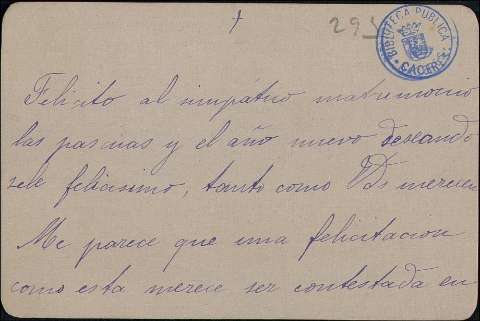 +
29
BIBLIOTECA PUBLICA
CACERES
Felicito al simpático matrimonio
las pascuas y el año nuevo deseando
sele felicisimo, tanto como Vds merecen
Me parece que una felicitacion
como esta merece ser contestada en